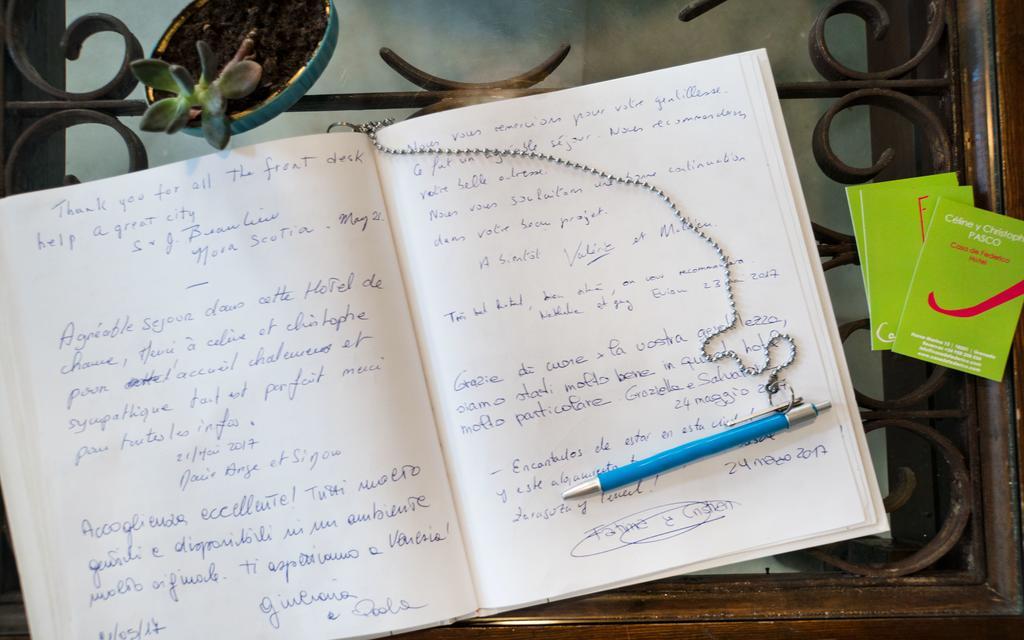 Thank you for all the front desk
help a great city
S & J. Beaulieu
Nova Scotia. May 21.
Agréable sejour dans cette Hotel de
charme, Merci à celine et christophe
pour l'accueil chaleureux et
sympathique tout est parfait merci
pour toutes les infos.
21/Mai 2017
Marie Ange et Simon
Accoglienza eccellente! Tutti molto
gentili e disponibili in un ambiente
molto originale. Ti aspettiamo a Venezia!
Giuliana
e Paola
/05/17
Nous vous remercions pour votre gentillesse.
Ce fut un agréable séjour. Nous recommanderons
votre belle adresse.
Nous vous souhaitons une bonne continuation
dans votre beau projet.
A bientôt Valérie et Mathieu
Très bel hotel, bien situé, on vous recommandera.
et Guy Evian 23 mai 2017
Grazie di cuore x la vostra gentilezza,
siamo stati molto bene in questo hotel
molto particolare. Graziella e Salvatore
24 maggio
- Encantados de estar en esta
y este alojamiento
Zaragoza y Teruel!
24 mayo 2017
Fatima y Cristian
Céline y Christophe
PASCO
Casa de Federico
Hotel